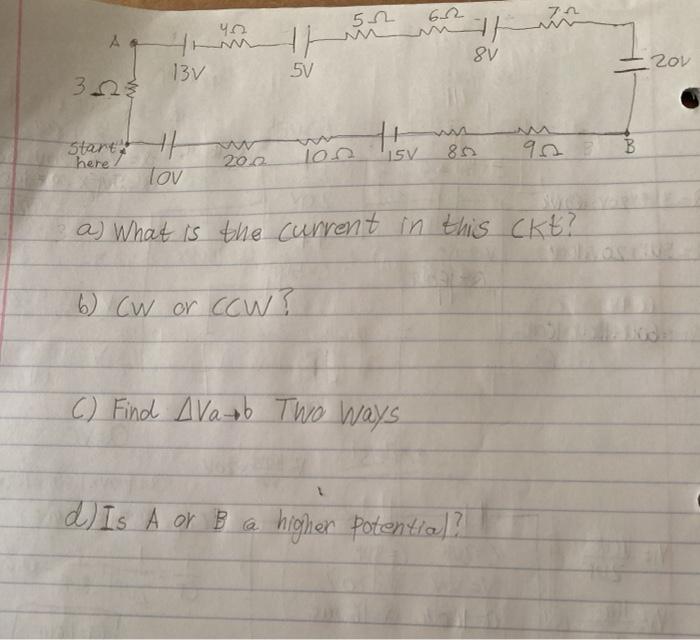 4Ω 5Ω 6Ω 7Ω
A
13V 5V 8V 20V
3Ω
Start here!
10V 20Ω 10Ω 15V 8Ω 9Ω B
a) What is the current in this CKt?
b) CW or CCW?
C) Find ΔVa→b Two Ways
d) Is A or B a higher potential?